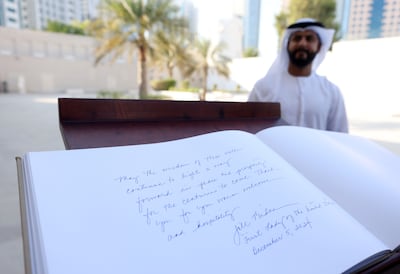 May the wisdom of these rulers
continue to light a way
forward in peace and prosperity
for the centuries to come. Thank
you for your warm welcome
and hospitality
Jill Biden
First Lady of the United States
December 5, 2024